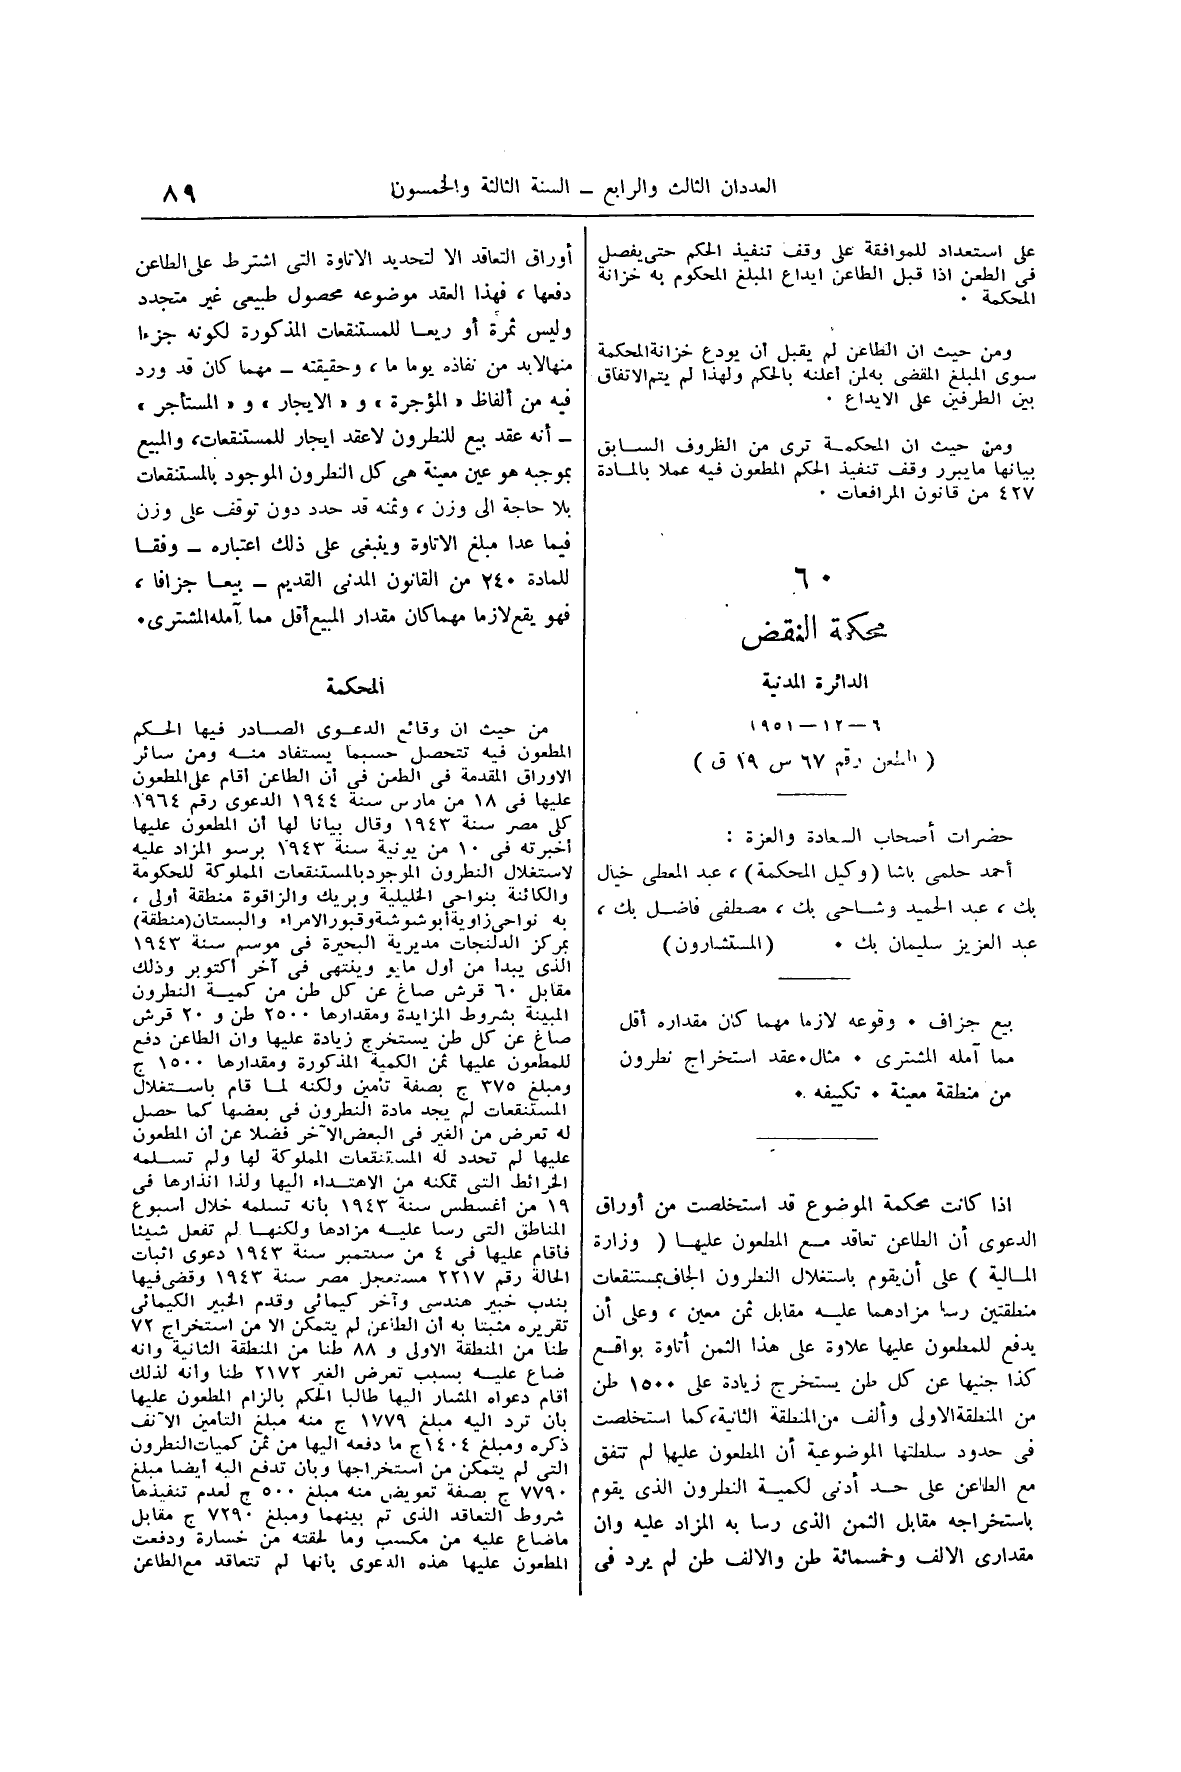 العددان الثالث والرابع — السنة الثالثة والخمسون
٨٩
على استعداد للموافقة على وقف تنفيذ الحكم حتى يفصل
فى الطعن اذا قبل الطاعن ايداع المبلغ المحكوم به خزانة
المحكمة ٠
ومن حيث ان الطاعن لم يقبل أن يودع خزانة المحكمة
سوى المبلغ المقضى به لمن أعلنه بالحكم ولهذا لم يتم الاتفاق
بين الطرفين على الايداع ٠
ومن حيث ان المحكمة ترى من الظروف السابق
بيانها ما يبرر وقف تنفيذ الحكم المطعون فيه عملا بالمادة
٤٢٧ من قانون المرافعات ٠
٦٠
محكمة النقض
الدائرة المدنية
٦ — ١٢ — ١٩٥١
( الطعن رقم ٦٧ س ١٩ ق )
حضرات أصحاب السعادة والعزة :
أحمد حلمى باشا (وكيل المحكمة) ، عبد المعطى خيال
بك ، عبد الحميد وشاحى بك ، مصطفى فاضل بك ،
عبد العزيز سليمان بك ٠ (المستشارون)
بيع جزاف ٠ وقوعه لازما مهما كان مقداره أقل
مما آمله المشترى ٠ مثال ٠ عقد استخراج نطرون
من منطقة معينة ٠ تكييفه ٠
اذا كانت محكمة الموضوع قد استخلصت من أوراق
الدعوى أن الطاعن تعاقد مع المطعون عليها ( وزارة
المالية ) على أن يقوم باستغلال النطرون الجاف بمستنقعات
منطقتين رسا مزادهما عليه مقابل ثمن معين ، وعلى أن
يدفع للمطعون عليها علاوة على هذا الثمن أتاوة بواقع
كذا جنيها عن كل طن يستخرج زيادة على ١٥٠٠ طن
من المنطقة الاولى وألف من المنطقة الثانية، كما استخلصت
فى حدود سلطتها الموضوعية أن المطعون عليها لم تتفق
مع الطاعن على حد أدنى لكمية النطرون الذى يقوم
باستخراجه مقابل الثمن الذى رسا به المزاد عليه وان
مقدارى الالف وخمسمائة طن والالف طن لم يرد فى
أوراق التعاقد الا لتحديد الاتاوة التى اشترط على الطاعن
دفعها ، فهذا العقد موضوعه محصول طبيعى غير متجدد
وليس ثمرة أو ريعا للمستنقعات المذكورة لكونه جزءا
منها لابد من نفاذه يوما ما ، وحقيقته — مهما كان قد ورد
فيه من ألفاظ « المؤجرة » و « الايجار » و « المستأجر »
— أنه عقد بيع للنطرون لا عقد ايجار للمستنقعات، والمبيع
بموجبه هو عين معينة هى كل النطرون الموجود بالمستنقعات
بلا حاجة الى وزن ، وثمنه قد حدد دون توقف على وزن
فيما عدا مبلغ الاتاوة وينبغى على ذلك اعتباره — وفقا
للمادة ٢٤٠ من القانون المدنى القديم — بيعا جزافا ،
فهو يقع لازما مهما كان مقدار المبيع أقل مما آمله المشترى ٠
المحكمة
من حيث ان وقائع الدعوى الصادر فيها الحكم
المطعون فيه تتحصل حسبما يستفاد منه ومن سائر
الاوراق المقدمة فى الطعن فى أن الطاعن أقام على المطعون
عليها فى ١٨ من مارس سنة ١٩٤٤ الدعوى رقم ١٩٦٤
كلى مصر سنة ١٩٤٣ وقال بيانا لها أن المطعون عليها
أخبرته فى ١٠ من يونية سنة ١٩٤٣ برسو المزاد عليه
لاستغلال النطرون الموجود بالمستنقعات المملوكة للحكومة
والكائنة بنواحى الخليلية وبريك والزاقوة منطقة أولى ،
به نواحى زاوية أبو شوشة وقبور الامراء والبستان (منطقة)
بمركز الدلنجات مديرية البحيرة فى موسم سنة ١٩٤٣
الذى يبدأ من أول مايو وينتهى فى آخر أكتوبر وذلك
مقابل ٦٠ قرش صاغ عن كل طن من كمية النطرون
المبينة بشروط المزايدة ومقدارها ٢٥٠٠ طن و ٢٠ قرش
صاغ عن كل طن يستخرج زيادة عليها وان الطاعن دفع
للمطعون عليها ثمن الكمية المذكورة ومقدارها ١٥٠٠ ج
ومبلغ ٣٧٥ ج بصفة تأمين ولكنه لما قام باستغلال
المستنقعات لم يجد مادة النطرون فى بعضها كما حصل
له تعرض من الغير فى البعض الآخر فضلا عن أن المطعون
عليها لم تحدد له المستنقعات المملوكة لها ولم تسلمه
الخرائط التى تمكنه من الاهتداء اليها ولذا انذارها فى
١٩ من أغسطس سنة ١٩٤٣ بأنه تسلمه خلال أسبوع
المناطق التى رسا عليه مزادها ولكنها لم تفعل شيئا
فأقام عليها فى ٤ من سبتمبر سنة ١٩٤٣ دعوى اثبات
الحالة رقم ٢٢١٧ مستعجل مصر سنة ١٩٤٣ وقضى فيها
بندب خبير هندسى وآخر كيمائى وقدم الخبير الكيمائى
تقريره مثبتا به أن الطاعن لم يتمكن الا من استخراج ٧٢
طنا من المنطقة الاولى و ٨٨ طنا من المنطقة الثانية وانه
ضاع عليه بسبب تعرض الغير ٢١٧٢ طنا وأنه لذلك
أقام دعواه المشار اليها طالبا الحكم بالزام المطعون عليها
بان ترد اليه مبلغ ١٧٧٩ ج منه مبلغ التأمين الآنف
ذكره ومبلغ ١٤٠٤ ج ما دفعه اليها من ثمن كميات النطرون
التى لم يتمكن من استخراجها وبان تدفع اليه أيضا مبلغ
٧٧٩٠ ج بصفة تعويض منه مبلغ ٥٠٠ ج لعدم تنفيذها
شروط التعاقد الذى تم بينهما ومبلغ ٧٢٩٠ ج مقابل
ماضاع عليه من مكسب وما لحقته من خسارة ودفعت
المطعون عليها هذه الدعوى بانها لم تتعاقد مع الطاعن